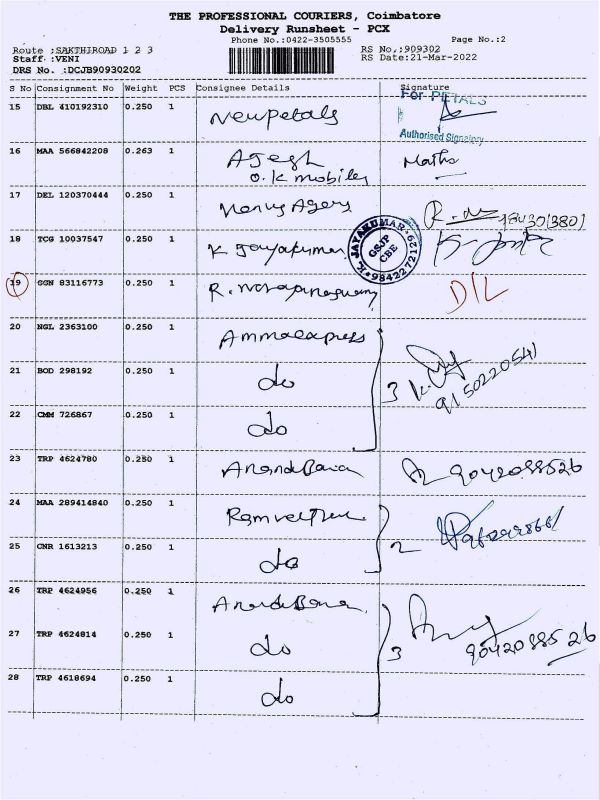 THE PROFESSIONAL COURIERS, Coimbatore
Delivery Runsheet - PCX
Phone No.:0422-3505555 Page No.:2
Route :SAKTHIROAD 1 2 3 RS No.:909302
Staff :VENI RS Date:21-Mar-2022
DRS No. :DCJB90930202
S No Consignment No Weight PCS Consignee Details Signature
For PETALS
15 DBL 410192310 0.250 1 Newpetals
Authorised Signatory
16 MAA 566842208 0.263 1 Ajesh
O.K mobiles
17 DEL 120370444 0.250 1
18 TCG 10037547 0.250 1 K Jayakumar
K. JAYAKUMAR GSJP CBE
19 GGN 83116773 0.250 1 D/L
20 NGL 2363100 0.250 1
21 BOD 298192 0.250 1 do 3 9150220541
22 CMM 726867 0.250 1 do
23 TRP 4624780 0.250 1 9042088526
24 MAA 289414840 0.250 1
25 CNR 1613213 0.250 1 do 2
26 TRP 4624956 0.250 1
27 TRP 4624814 0.250 1 do 3 9042088526
28 TRP 4618694 0.250 1 do